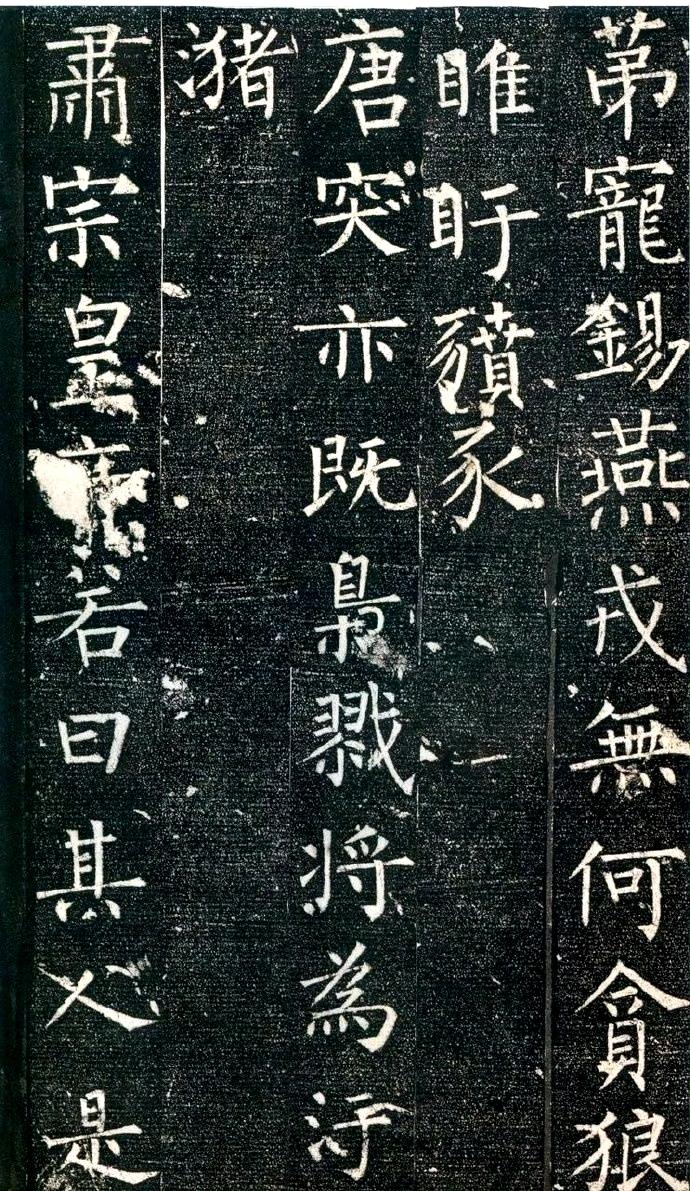 苐寵錫燕戎無何貪狼
睢盱豶豕
唐突亦既梟戮將為汙
潴
肅宗皇帝若曰其人是